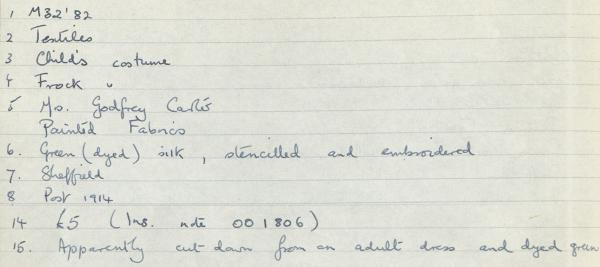 1 M32'82
2 Textiles
3 Child's costume
4 Frock "
5 Ms. Godfrey
Painted Fabrics
6. Green (dyed) silk, stencilled and embroidered
7. Sheffield
8 Post 1914
14 £5 (Ins. note 001806)
15. Apparently cut down from an adult dress and dyed green